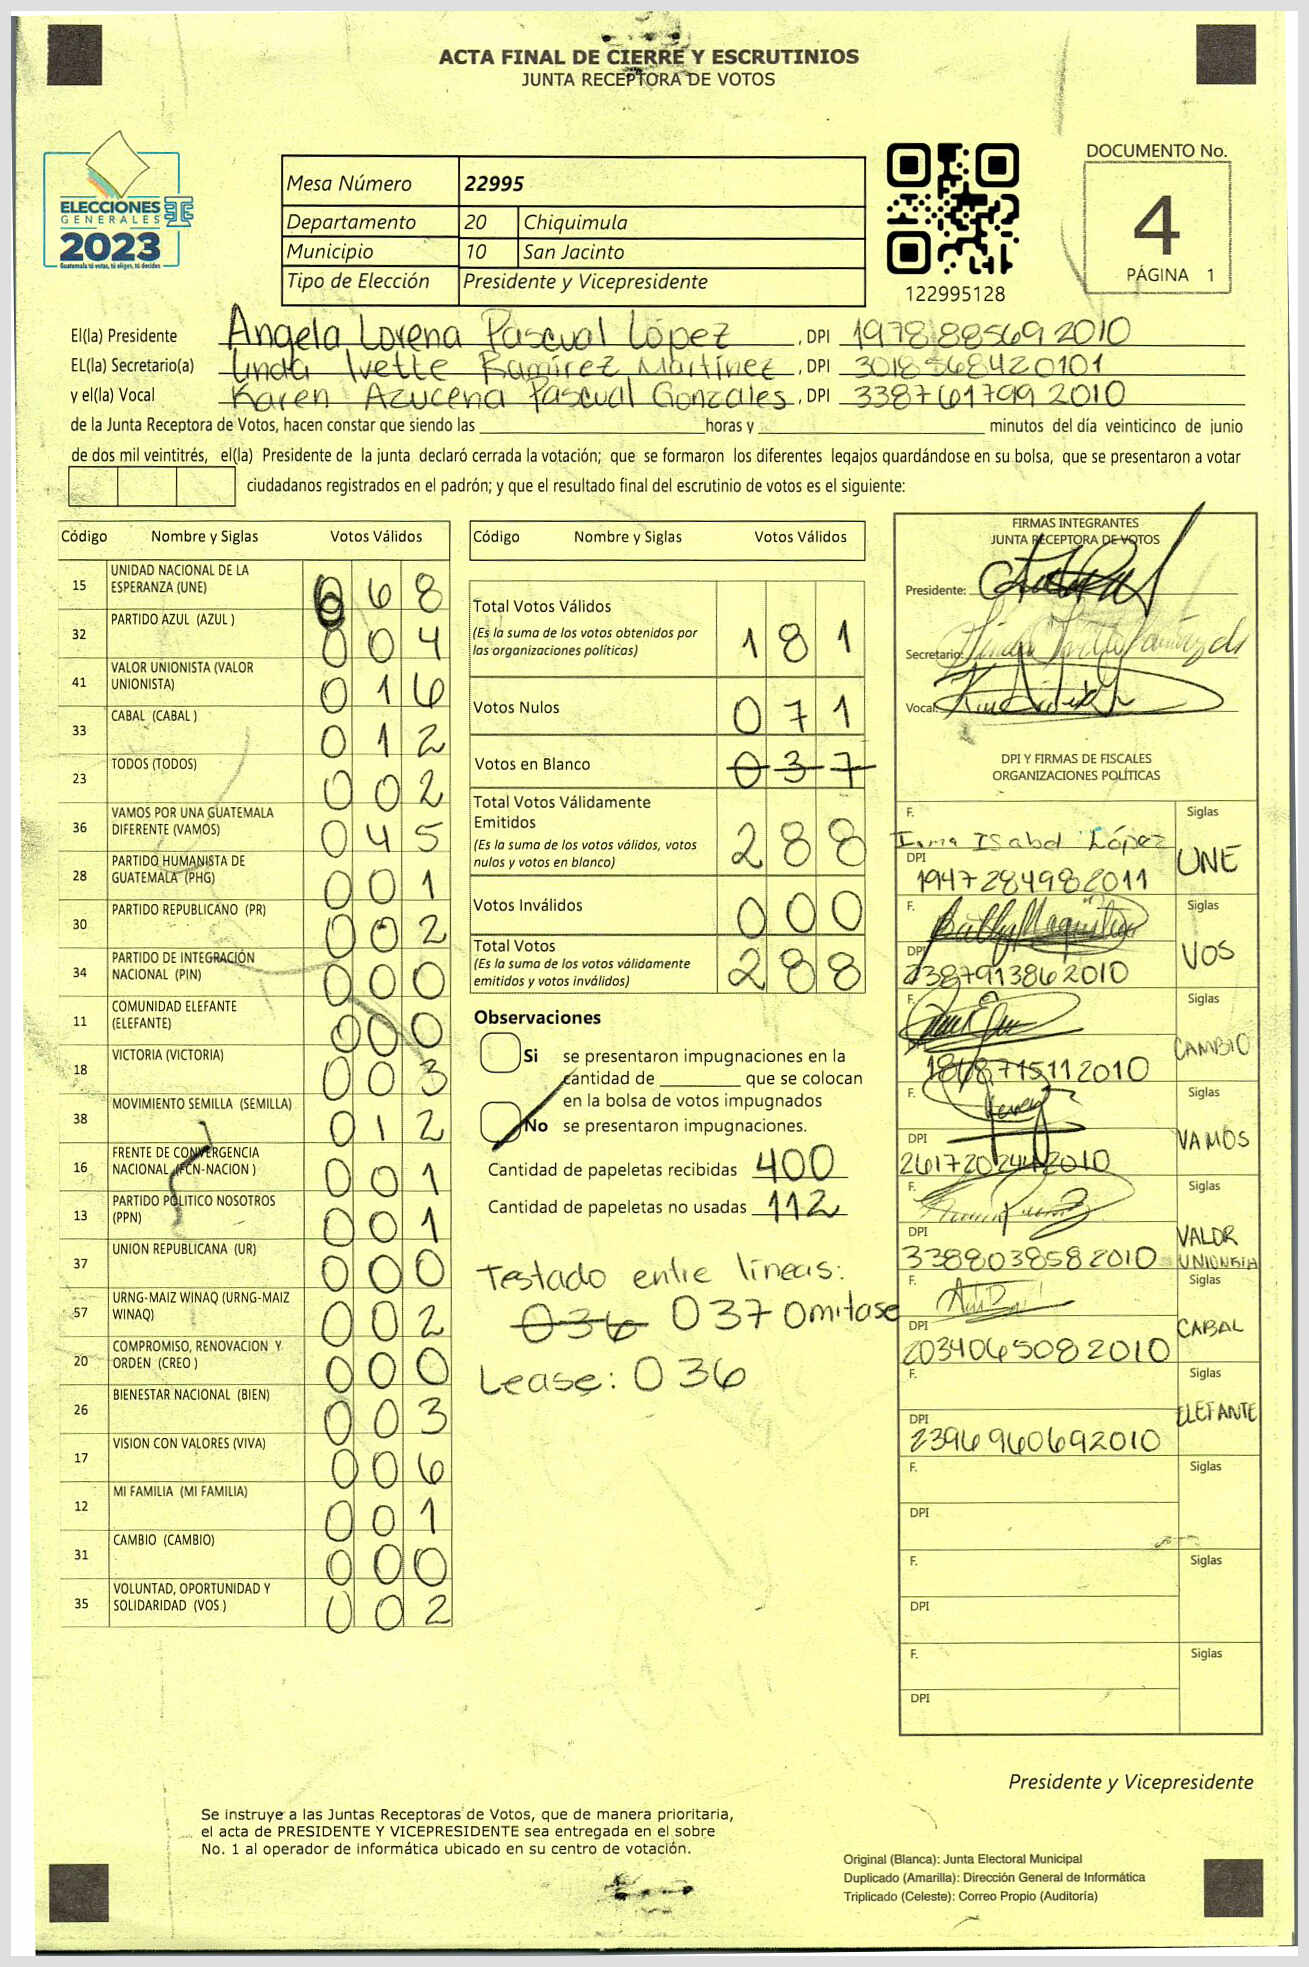 ACTA FINAL DE CIERRE Y ESCRUTINIOS
JUNTA RECEPTORA DE VOTOS
ELECCIONES
GENERALES
2023
Guatemala tú votas, tú eliges, tú decides
Mesa Número 22995
Departamento 20 Chiquimula
Municipio 10 San Jacinto
Tipo de Elección Presidente y Vicepresidente
122995128
DOCUMENTO No.
4
PÁGINA 1
El(la) Presidente Angela Lorena Pascual López, DPI 1978885692010
EL(la) Secretario(a) Linda Ivette Ramírez Martínez, DPI 3018568420101
y el(la) Vocal Karen Azucena Pascual Gonzales, DPI 3387617992010
de la Junta Receptora de Votos, hacen constar que siendo las horas y minutos del día veinticinco de junio
de dos mil veintitrés, el(la) Presidente de la junta declaró cerrada la votación; que se formaron los diferentes legajos guardándose en su bolsa, que se presentaron a votar
ciudadanos registrados en el padrón; y que el resultado final del escrutinio de votos es el siguiente:
Código Nombre y Siglas Votos Válidos
15 UNIDAD NACIONAL DE LA ESPERANZA (UNE) 068
32 PARTIDO AZUL (AZUL ) 004
41 VALOR UNIONISTA (VALOR UNIONISTA) 016
33 CABAL (CABAL ) 012
23 TODOS (TODOS) 002
36 VAMOS POR UNA GUATEMALA DIFERENTE (VAMOS) 045
28 PARTIDO HUMANISTA DE GUATEMALA (PHG) 001
30 PARTIDO REPUBLICANO (PR) 002
34 PARTIDO DE INTEGRACIÓN NACIONAL (PIN) 000
11 COMUNIDAD ELEFANTE (ELEFANTE) 000
18 VICTORIA (VICTORIA) 003
38 MOVIMIENTO SEMILLA (SEMILLA) 012
16 FRENTE DE CONVERGENCIA NACIONAL (FCN-NACION ) 001
13 PARTIDO POLITICO NOSOTROS (PPN) 001
37 UNION REPUBLICANA (UR) 000
57 URNG-MAIZ WINAQ (URNG-MAIZ WINAQ) 002
20 COMPROMISO, RENOVACION Y ORDEN (CREO ) 000
26 BIENESTAR NACIONAL (BIEN) 003
17 VISION CON VALORES (VIVA) 006
12 MI FAMILIA (MI FAMILIA) 001
31 CAMBIO (CAMBIO) 000
35 VOLUNTAD, OPORTUNIDAD Y SOLIDARIDAD (VOS ) 002
Código Nombre y Siglas Votos Válidos
Total Votos Válidos 181
(Es la suma de los votos obtenidos por
las organizaciones políticas)
Votos Nulos 071
Votos en Blanco 037
Total Votos Válidamente
Emitidos 288
(Es la suma de los votos válidos, votos
nulos y votos en blanco)
Votos Inválidos 000
Total Votos 288
(Es la suma de los votos válidamente
emitidos y votos inválidos)
Observaciones
Si se presentaron impugnaciones en la
cantidad de que se colocan
en la bolsa de votos impugnados
No se presentaron impugnaciones.
Cantidad de papeletas recibidas 400
Cantidad de papeletas no usadas 112
Testado entre líneas:
036 037 Omitase
Lease: 036
FIRMAS INTEGRANTES
JUNTA RECEPTORA DE VOTOS
Presidente:
Secretario:
Vocal:
DPI Y FIRMAS DE FISCALES
ORGANIZACIONES POLÍTICAS
F. Irma Isabel López Siglas
DPI 1947284982011 UNE
F. Siglas
DPI 2387913862010 VOS
F. Siglas
1808715112010 CAMBIO
F. Siglas
DPI 2617202442010 VAMOS
F. Siglas
DPI 3388038582010 VALOR UNIONISTA
F. Siglas
DPI 2034065082010 CABAL
F. Siglas
DPI 2396960692010 ELEFANTE
F. Siglas
DPI
F. Siglas
DPI
F. Siglas
DPI
Presidente y Vicepresidente
Se instruye a las Juntas Receptoras de Votos, que de manera prioritaria,
el acta de PRESIDENTE Y VICEPRESIDENTE sea entregada en el sobre
No. 1 al operador de informática ubicado en su centro de votación.
Original (Blanca): Junta Electoral Municipal
Duplicado (Amarilla): Dirección General de Informática
Triplicado (Celeste): Correo Propio (Auditoría)